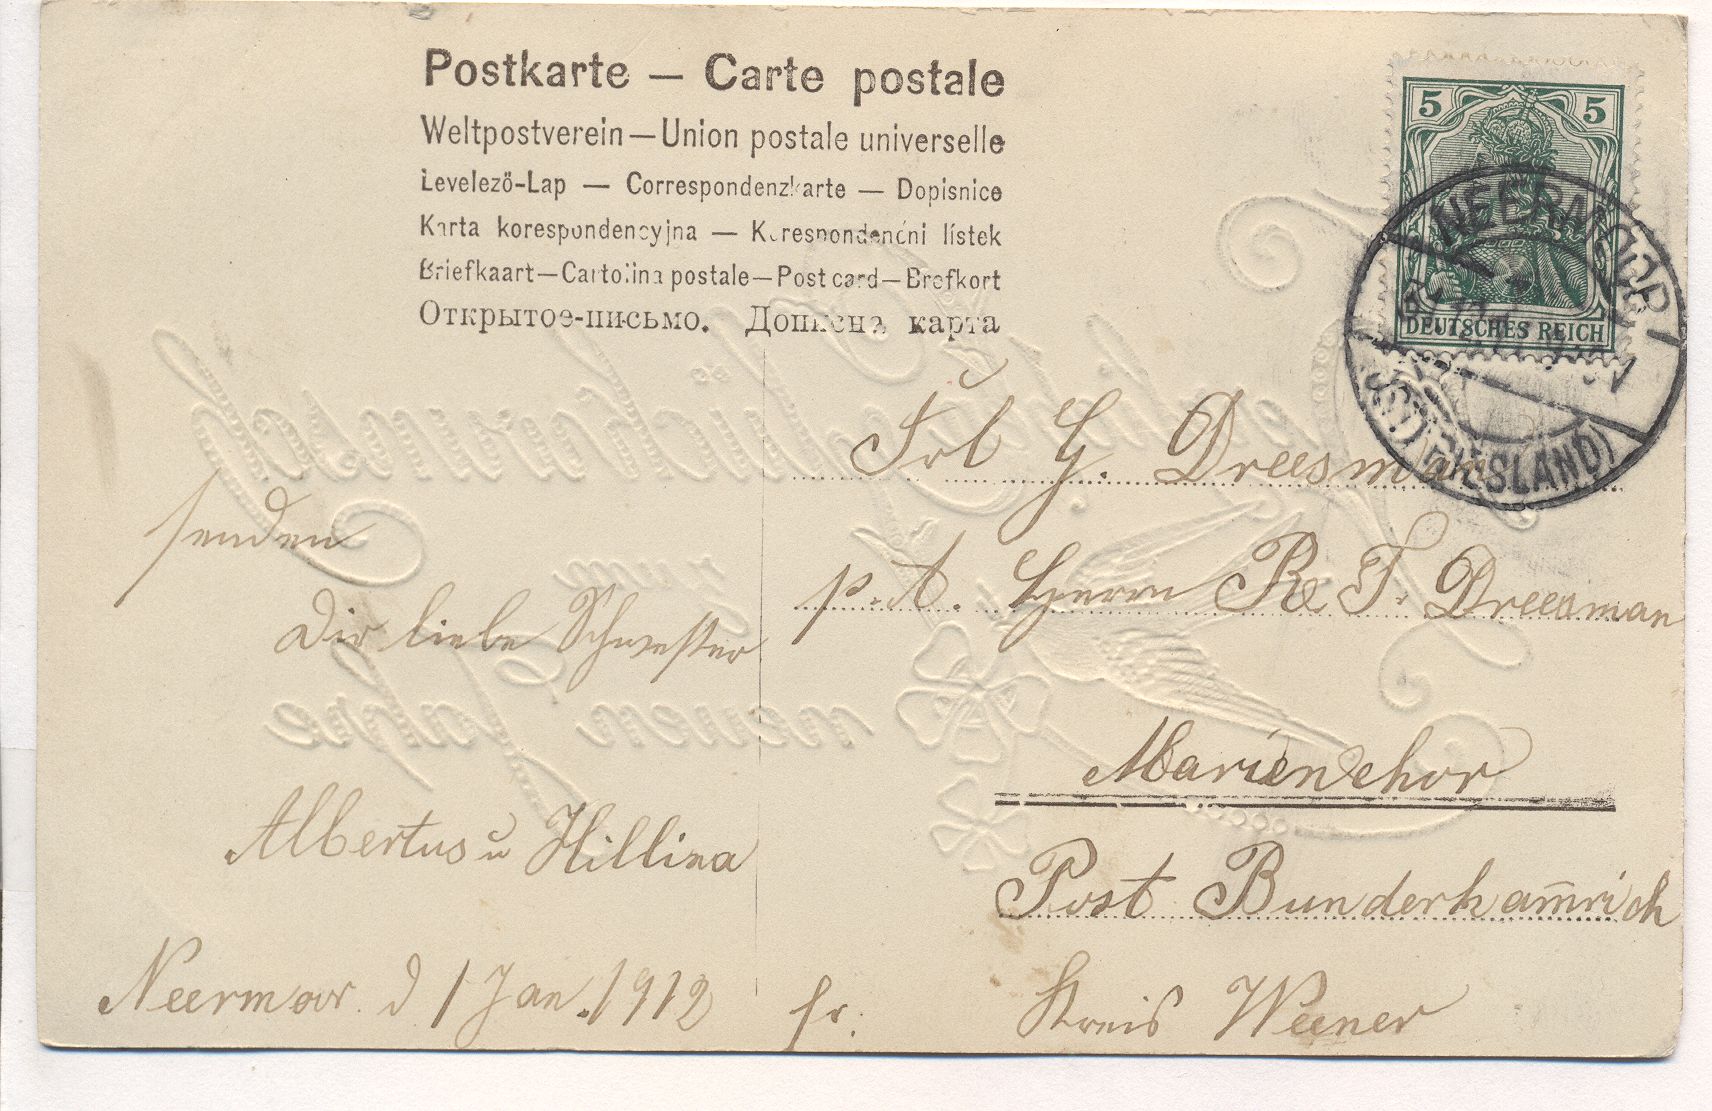 Postkarte — Carte postale
Weltpostverein — Union postale universelle
Levelező-Lap — Correspondenzkarte — Dopisnice
Karta korespondencyjna — Korespondenční lístek
Briefkaart — Cartolina postale — Post card — Brefkort
Открытое-письмо. Дописна карта
5 5
DEUTSCHES REICH
NEERMOOR
(OSTFRIESLAND)
Frl G. Dreesman
p. A. Herrn Re F. Dreesman
Marienchor
Post Bunderham̄rich
Kreis Weener
senden
Dir liebe Schwester
Albertus u Hillina
Neermoor. d 1 Jan. 1912
fr.
Herzlichen Glückwunsch
zum
neuen Jahre